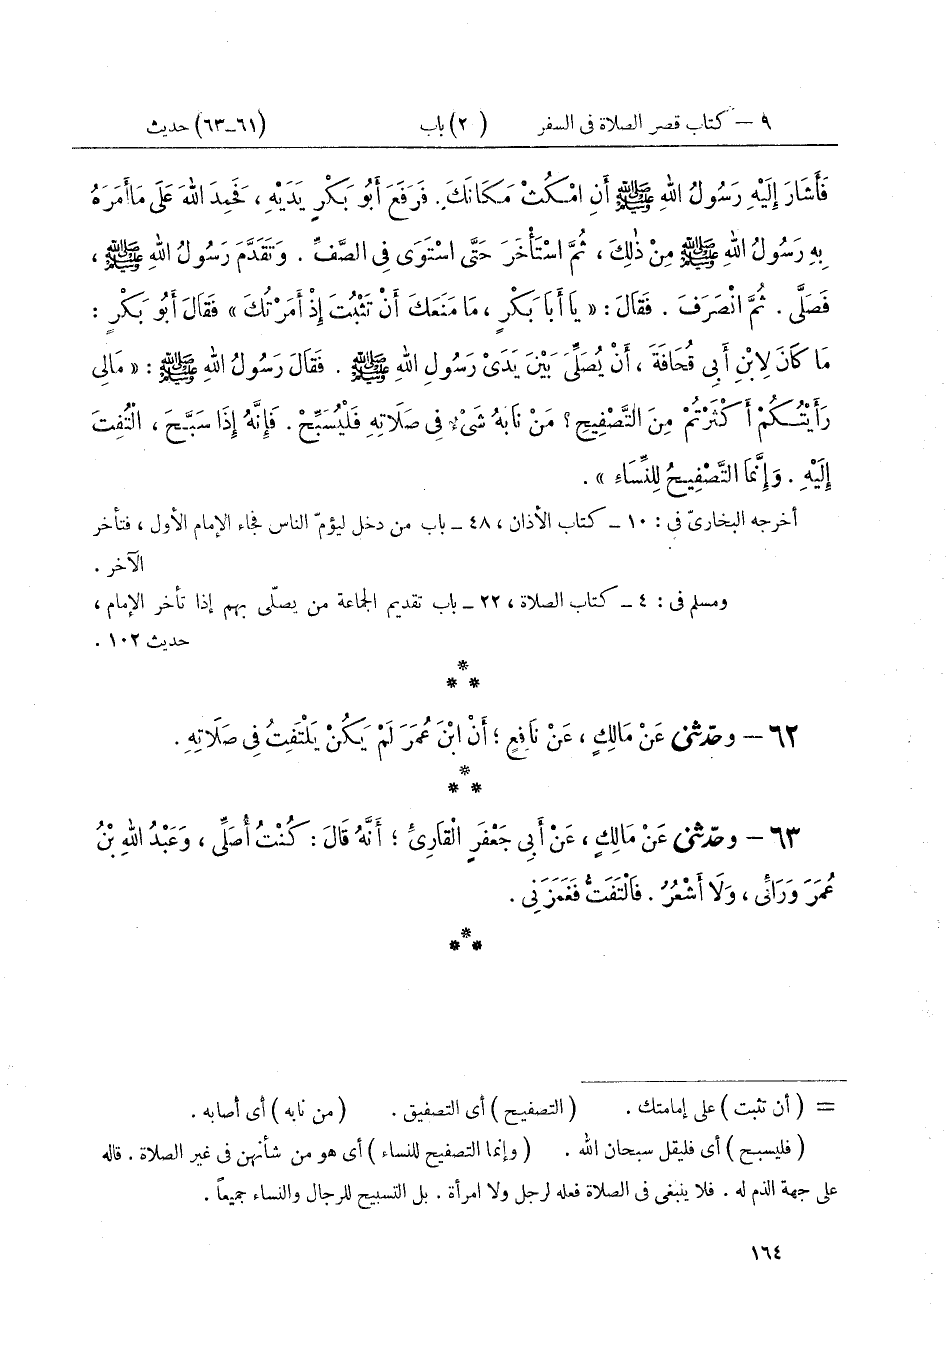 ٩ – كتاب قصر الصلاة فى السفر (٢٠) باب (٦١–٦٣) حديث
فَأَشَارَ إِلَيْهِ رَسُولُ اللهِ ﷺ أَنِ امْكُثْ مَكَانَكَ. فَرَفَعَ أَبُو بَكْرٍ يَدَيْهِ ، فَحَمِدَ اللهَ عَلَى مَا أَمَرَهُ
بِهِ رَسُولُ اللهِ ﷺ مِنْ ذٰلِكَ ، ثُمَّ اسْتَأْخَرَ حَتَّى اسْتَوَى فِى الصَّفِّ . وَتَقَدَّمَ رَسُولُ اللهِ ﷺ ،
فَصَلَّى . ثُمَّ انْصَرَفَ . فَقَالَ : « يَا أَبَا بَكْرٍ ، مَا مَنَعَكَ أَنْ تَثْبُتَ إِذْ أَمَرْتُكَ » فَقَالَ أَبُو بَكْرٍ :
مَا كَانَ لِابْنِ أَبِى قُحَافَةَ ، أَنْ يُصَلِّىَ بَيْنَ يَدَىْ رَسُولِ اللهِ ﷺ . فَقَالَ رَسُولُ اللهِ ﷺ : « مَالِى
رَأَيْتُكُمْ أَكْثَرْتُمْ مِنَ التَّصْفِيحِ ؟ مَنْ نَابَهُ شَىْءٌ فِى صَلَاتِهِ فَلْيُسَبِّحْ . فَإِنَّهُ إِذَا سَبَّحَ ، الْتُفِتَ
إِلَيْهِ . وَإِنَّمَا التَّصْفِيحُ لِلنِّسَاءِ » .
أخرجه البخارىّ فى : ١٠ – كتاب الأذان ، ٤٨ – باب من دخل ليؤمّ الناس فجاء الإمام الأول ، فتأخر
الآخر .
ومسلم فى : ٤ – كتاب الصلاة ، ٢٢ – باب تقديم الجماعة من يصلّى بهم إذا تأخر الإمام ،
حديث ١٠٢ .
*
* *
٦٢ – وحدّثنى عَنْ مَالِكٍ ، عَنْ نَافِعٍ ؛ أَنَّ ابْنَ عُمَرَ لَمْ يَكُنْ يَلْتَفِتُ فِى صَلَاتِهِ .
*
* *
٦٣ – وحدّثنى عَنْ مَالِكٍ ، عَنْ أَبِى جَعْفَرٍ الْقَارِئِ ؛ أَنَّهُ قَالَ : كُنْتُ أُصَلِّى ، وَعَبْدُ اللهِ بْنُ
عُمَرَ وَرَائِى ، وَلَا أَشْعُرُ . فَالْتَفَتُّ فَغَمَزَنِى .
*
* *
= ( أن تثبت ) على إمامتك . ( التصفيح ) أى التصفيق . ( من نابه ) أى أصابه .
( فليسبح ) أى فليقل سبحان الله . ( وإنما التصفيح للنساء ) أى هو من شأنهن فى غير الصلاة . قاله
على جهة الذم له . فلا ينبغى فى الصلاة فعله لرجل ولا امرأة . بل التسبيح للرجال والنساء جميعاً .
١٦٤